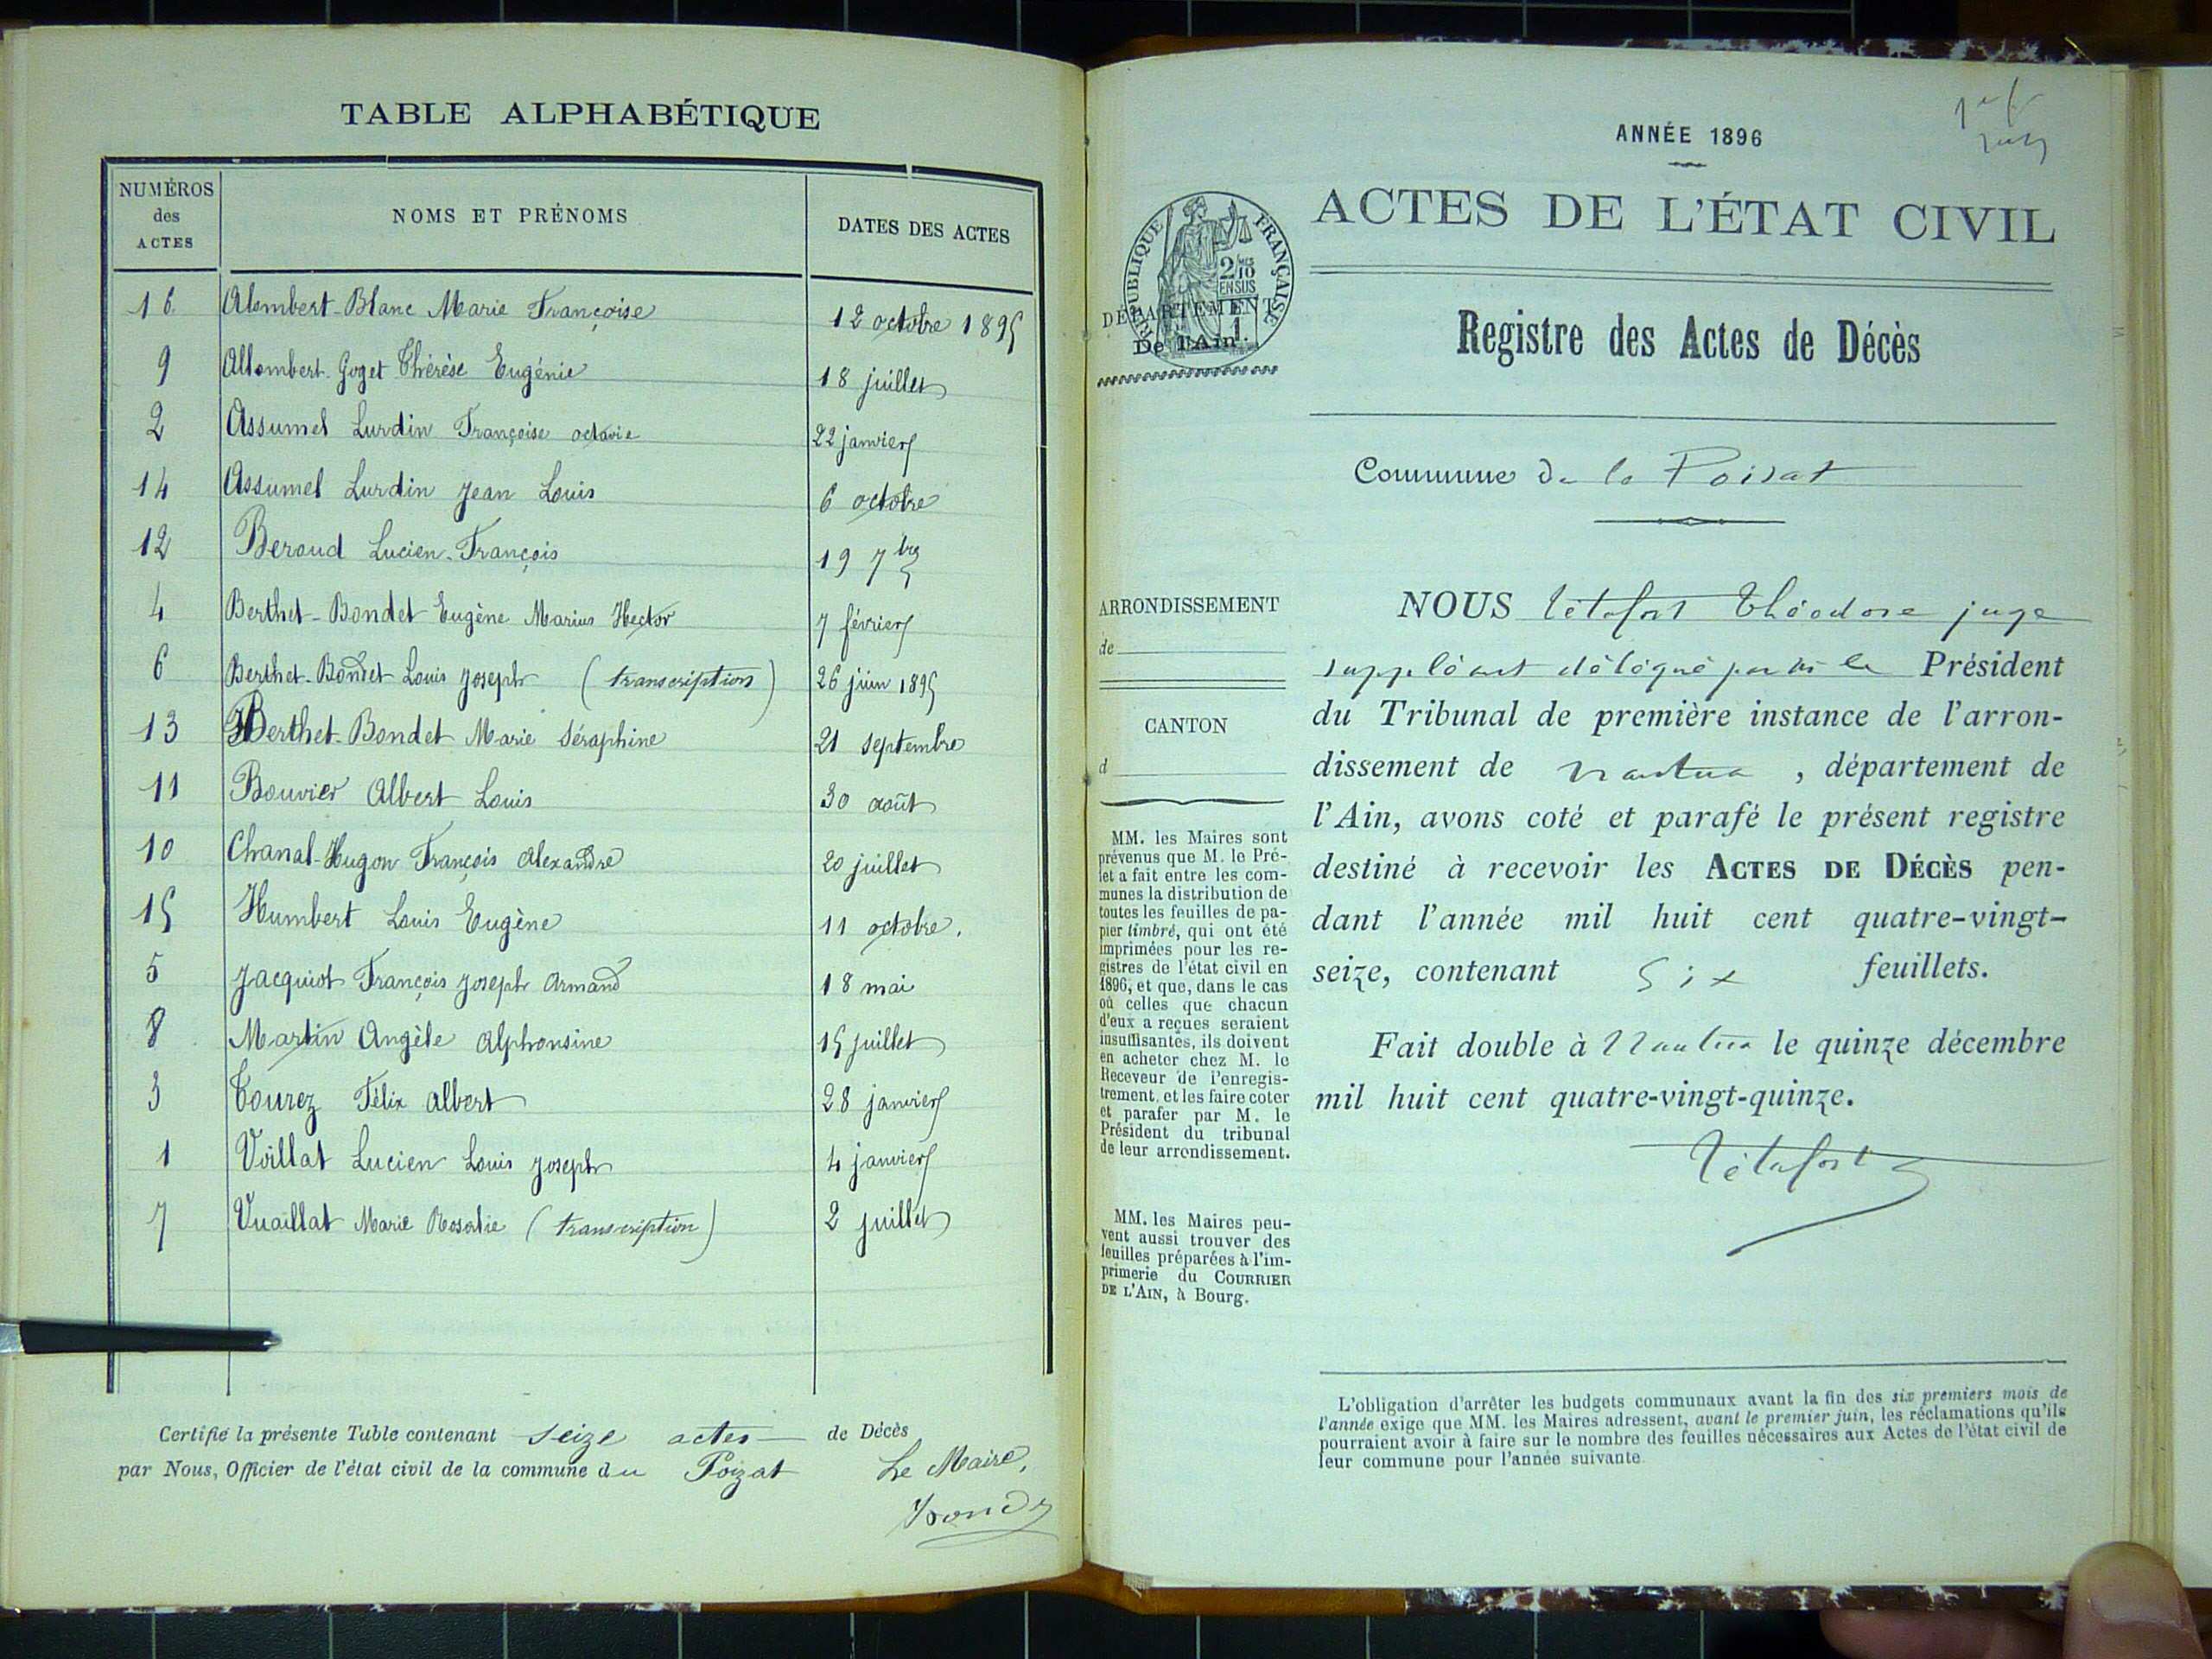 TABLE ALPHABÉTIQUE
NUMÉROS des ACTES NOMS ET PRÉNOMS DATES DES ACTES
16 Alombert-Blanc Marie Françoise 12 octobre 1895
9 Allombert-Goget Thérèse Eugénie 18 juillet
2 Assumel Lurdin Françoise octavie 22 janvier
14 Assumel Lurdin Jean Louis 6 octobre
12 Beroud Lucien-François 19 7bre
4 Berthet-Bondet Eugène Marius Hector 7 février
6 Berthet-Bondet Louis Joseph (transcription) 26 juin 1895
13 Berthet-Bondet Marie Séraphine 21 septembre
11 Bouvier Albert Louis 30 août
10 Chanal-Hugon François Alexandre 20 juillet
15 Humbert Louis Eugène 11 octobre.
5 Jacquiot François Joseph Armand 18 mai
8 Martin Angèle Alphonsine 15 juillet
3 Tourez Félix Albert 28 janvier
1 Voillat Lucien Louis Joseph 4 janvier
7 Vuaillat Marie Rosalie (transcription) 2 juillet
Certifié la présente Table contenant seize actes de Décès
par Nous, Officier de l'état civil de la commune du Poizat Le Maire,
ANNÉE 1896
ACTES DE L'ÉTAT CIVIL
RÉPUBLIQUE FRANÇAISE
2/10 MES
EN SUS
DÉPARTEMENT
De l'Ain.
Registre des Actes de Décès
Commune de le Poisat
ARRONDISSEMENT
de
CANTON
d
MM. les Maires sont
prévenus que M. le Pré-
fet a fait entre les com-
munes la distribution de
toutes les feuilles de pa-
pier timbré, qui ont été
imprimées pour les re-
gistres de l'état civil en
1896, et que, dans le cas
où celles que chacun
d'eux a reçues seraient
insuffisantes, ils doivent
en acheter chez M. le
Receveur de l'enregis-
trement, et les faire coter
et parafer par M. le
Président du tribunal
de leur arrondissement.
MM. les Maires peu-
vent aussi trouver des
feuilles préparées à l'im-
primerie du COURRIER
DE L'AIN, à Bourg.
NOUS Tétafort Théodore juge
suppléant délégué par Mr le Président
du Tribunal de première instance de l'arron-
dissement de Nantua, département de
l'Ain, avons coté et parafé le présent registre
destiné à recevoir les ACTES DE DÉCÈS pen-
dant l'année mil huit cent quatre-vingt-
seize, contenant Six feuillets.
Fait double à Nantua le quinze décembre
mil huit cent quatre-vingt-quinze.
Tétafort
L'obligation d'arrêter les budgets communaux avant la fin des six premiers mois de
l'année exige que MM. les Maires adressent, avant le premier juin, les réclamations qu'ils
pourraient avoir à faire sur le nombre des feuilles nécessaires aux Actes de l'état civil de
leur commune pour l'année suivante